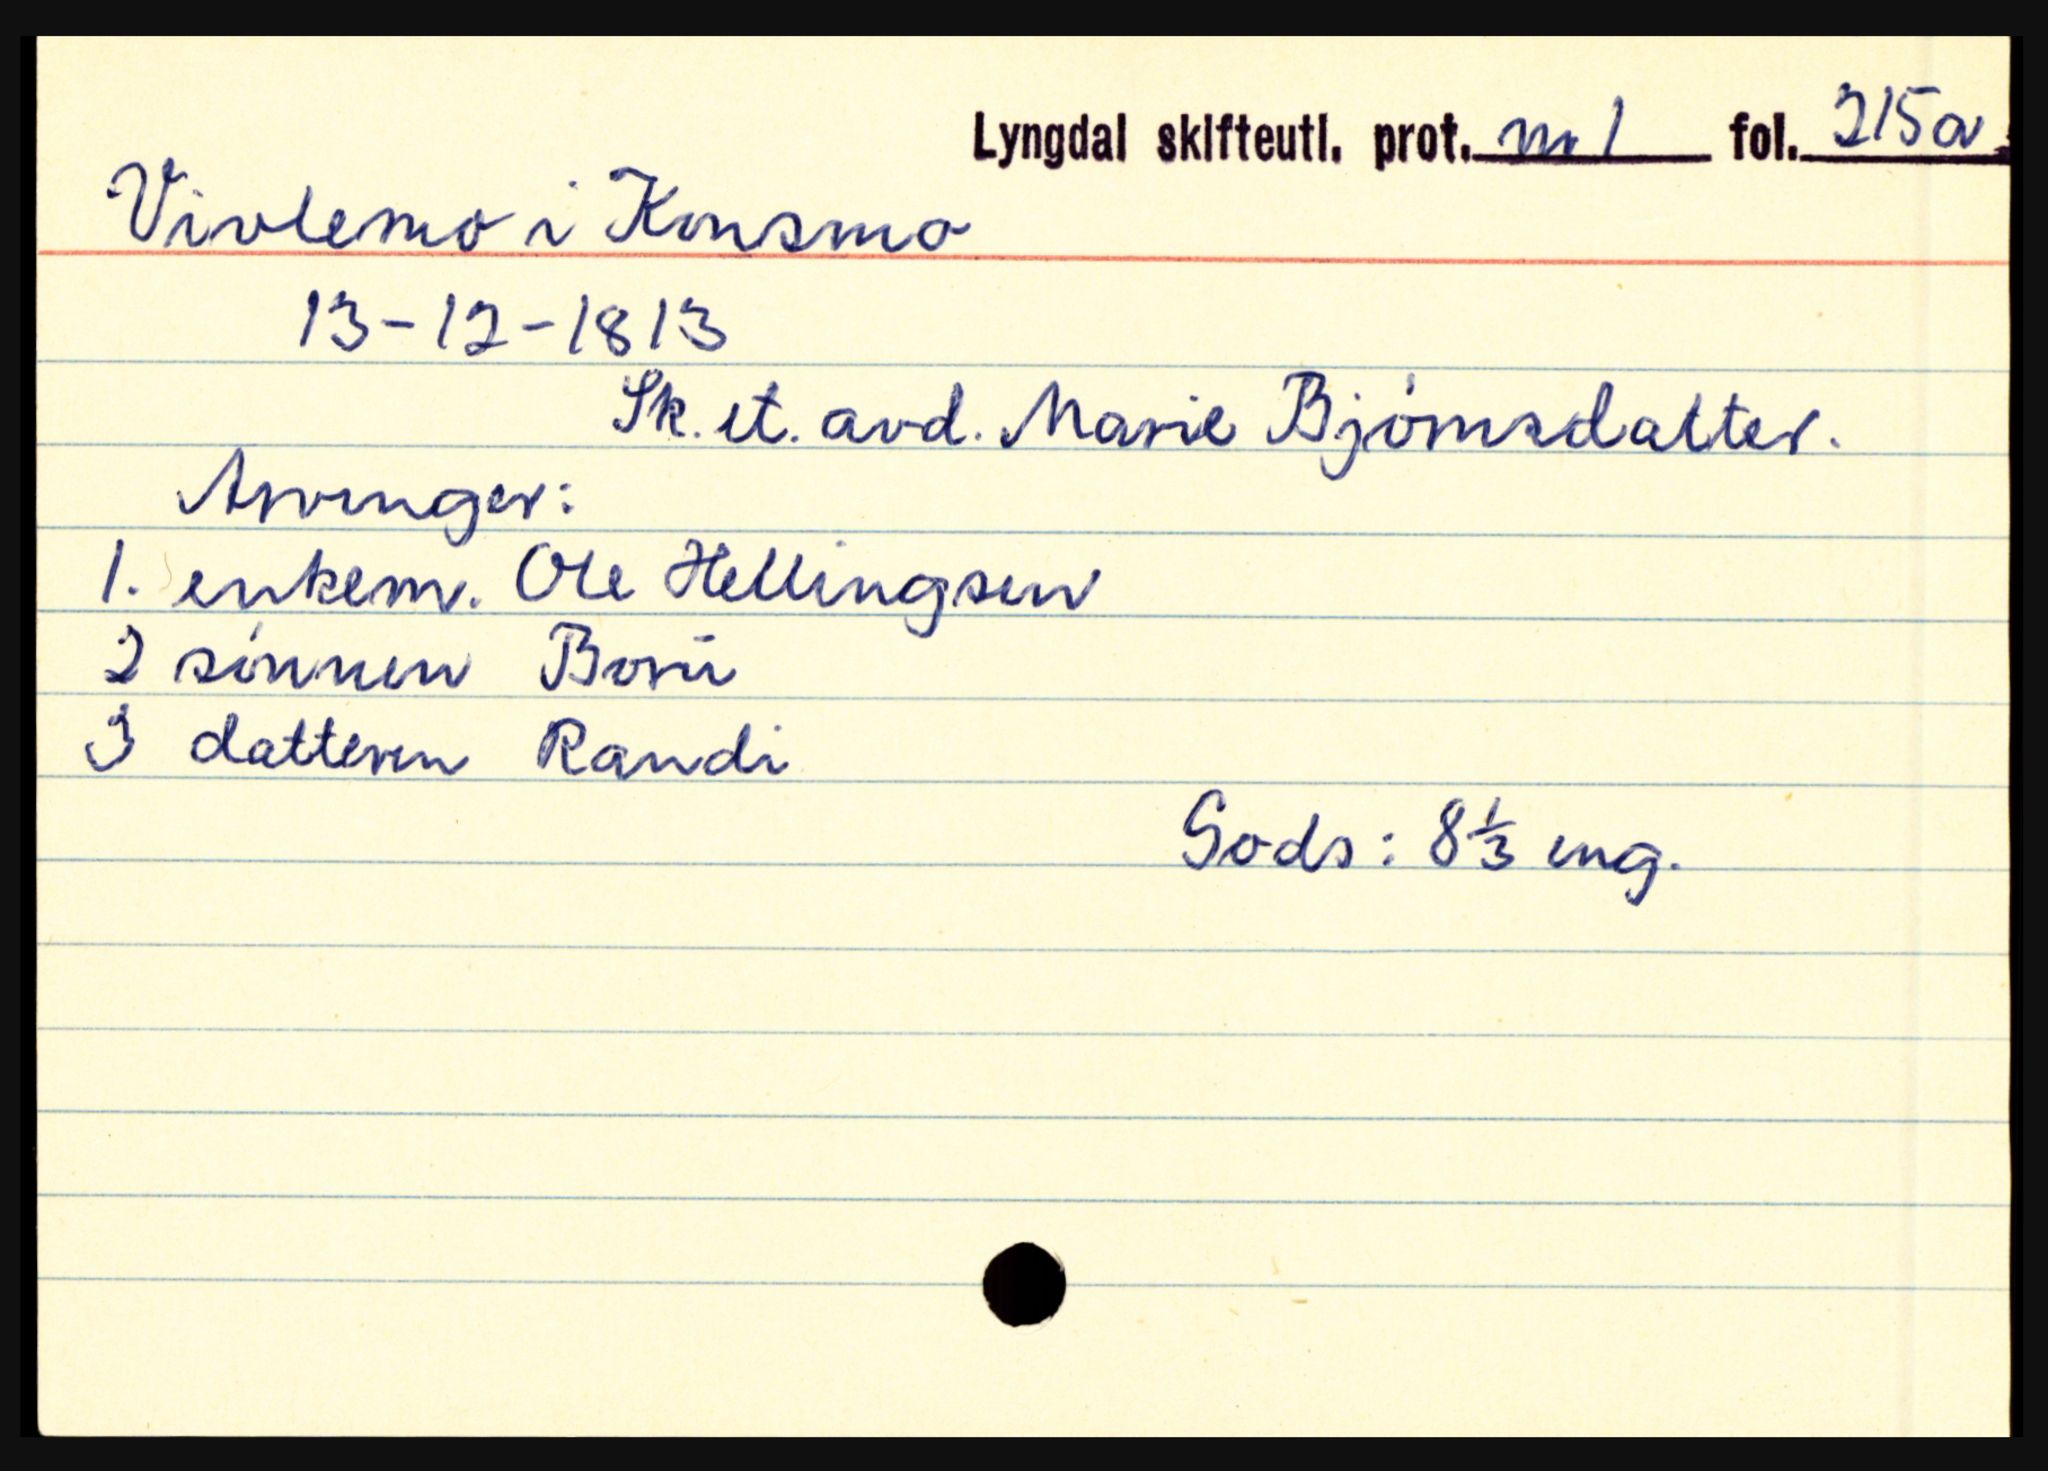 Lyngdal skifteutl. prot. nr 1 fol. 215a
Vivlemo i Konsmo
13-12-1813
Sk. et. avd. Marie Bjórnsdatter.
Arvinger:
1. enkem. Ole Hellingsen
2 sónnen
3 datteren Randi
Gods: 8 1/3 eng.